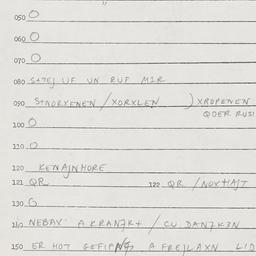 050 O
060 O
070 O
080 SATEJ UF UN RUF MIR
090 STNORXENEN / XORXLEN ) XROPENEN
QDER RUSI
100 O
110 O
120 KENAJNMORE
121 QR 122 QR / NUXHAJT
130 O
140 NEBAX' A KRANZK+ / CU DANZK3N
150 ER HOT GEFIPNG A FREJLAXN LID